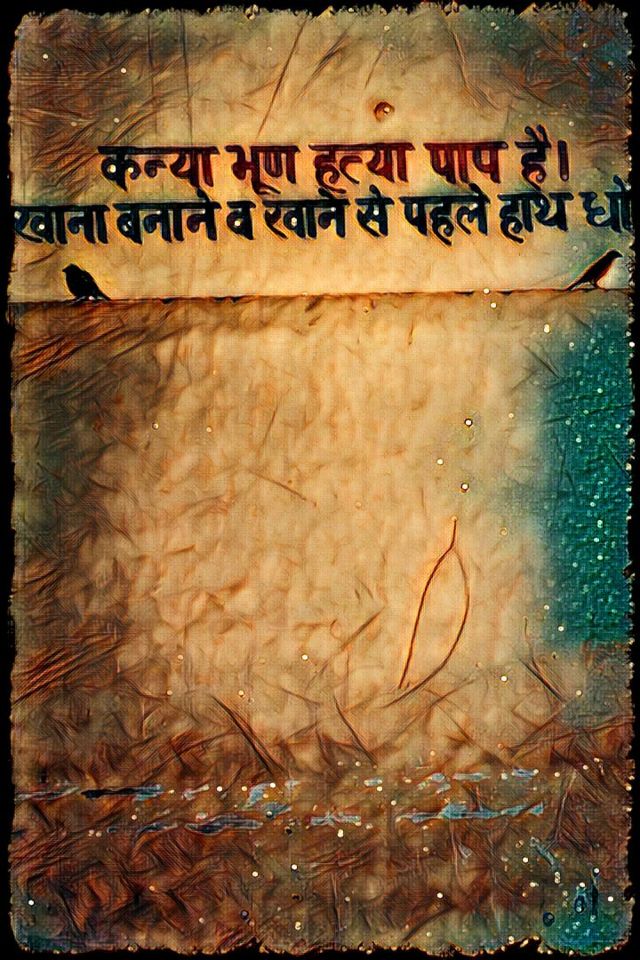 कन्या भूण हत्या पाप है।
खाना बनाने व खाने से पहले हाथ धो